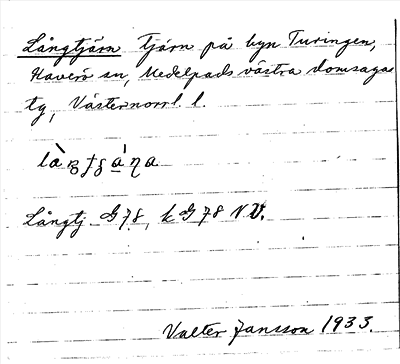 Långtjärn Tjärn på byn Turingen,
Haverö sn, Medelpads västra domsagas
tg, Västernorrl. l.
Långtj G 78, k G 78 N V.
Valter Jansson 1933.